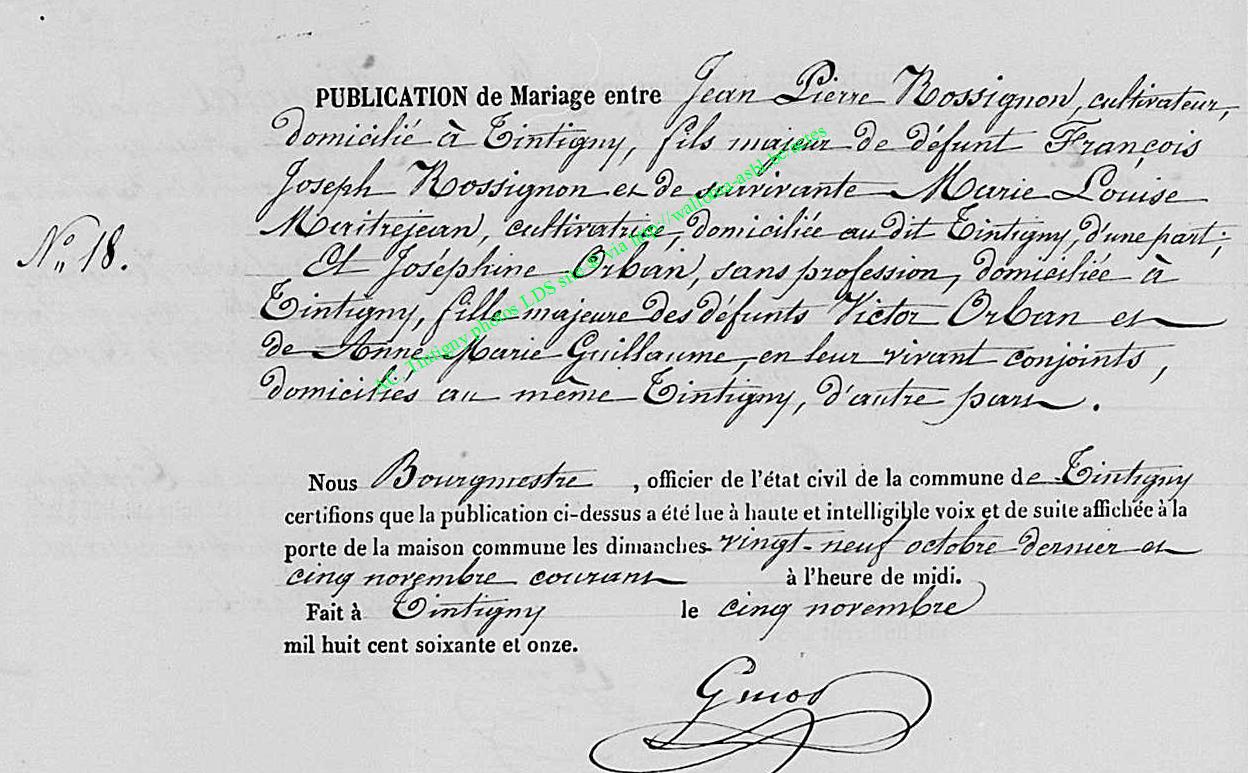 PUBLICATION de Mariage entre Jean Pierre Rossignon, cultivateur,
domicilié à Tintigny, fils majeur de défunt François
Joseph Rossignon et de survivante Marie Louise
Maitrejean, cultivatrice, domiciliée au dit Tintigny, d'une part;
N° 18.
Et Joséphine Orban, sans profession, domiciliée à
Tintigny, fille majeure des défunts Victor Orban et
de Anne Marie Guillaume, en leur vivant conjoints,
domiciliés au même Tintigny, d'autre part.
AC Tintigny photos LDS site © via http://wallonia-asbl.be/actes
Nous Bourgmestre, officier de l'état civil de la commune de Tintigny
certifions que la publication ci-dessus a été lue à haute et intelligible voix et de suite affichée à la
porte de la maison commune les dimanches vingt-neuf octobre dernier et
cinq novembre courant à l'heure de midi.
Fait à Tintigny le cinq novembre
mil huit cent soixante et onze.